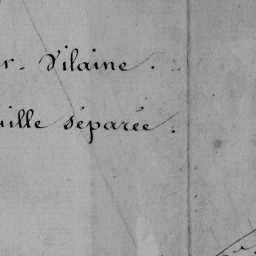 r. Vilaine.
uille séparée.